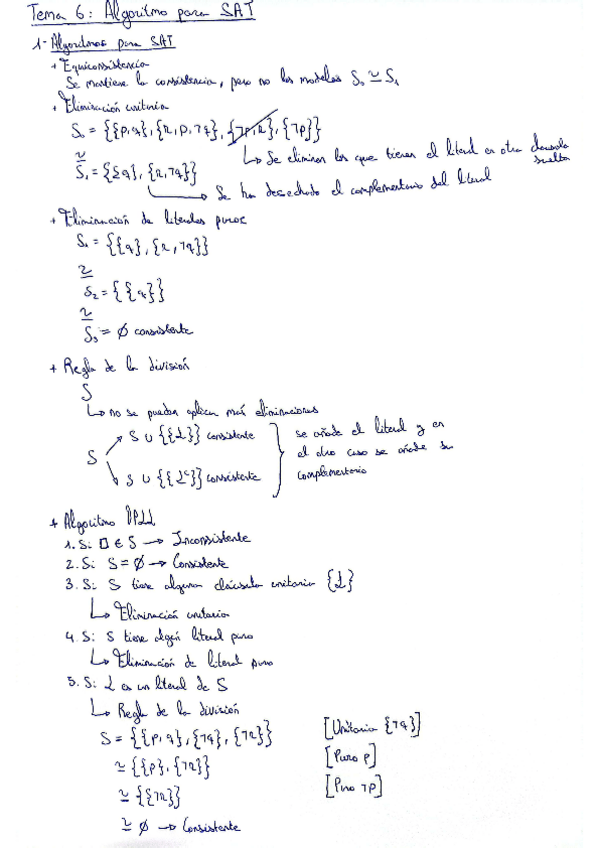 Tema 6: Algoritmo para SAT
1- Algoritmos para SAT
+ Equiconsistencia
Se mantiene la consistencia, pero no los modelos S₀ ≃ S₁
+ Eliminación unitaria
S₀ = {{p,q},{r,p,¬q},{¬p,r},{¬p}}
↳ Se eliminan los que tienen el literal en otra clausula suelta
≃
S₁ = {{q},{r,¬q}}
↳ Se ha desechado el complementario del literal
+ Eliminación de literales puros
S₁ = {{q},{r,¬q}}
≃
S₂ = {{q}}
≃
S₃ = ∅ consistente
+ Regla de la división
S
↳ no se pueden aplicar más eliminaciones
S ∪ {{L}} consistente
S
S ∪ {{Lᶜ}} consistente
se añade el literal y en
el otro caso se añade su
complementario
+ Algoritmo DPLL
1. Si □ ∈ S → Inconsistente
2. Si S = ∅ → Consistente
3. Si S tiene alguna cláusula unitaria {L}
↳ Eliminación unitaria
4. Si S tiene algún literal puro
↳ Eliminación de literal puro
5. Si L es un literal de S
↳ Regla de la división
S = {{p,q},{¬q},{¬r}} [Unitaria {¬q}]
≃ {{p},{¬r}} [Puro p]
≃ {{¬r}} [Puro ¬p]
≃ ∅ → Consistente